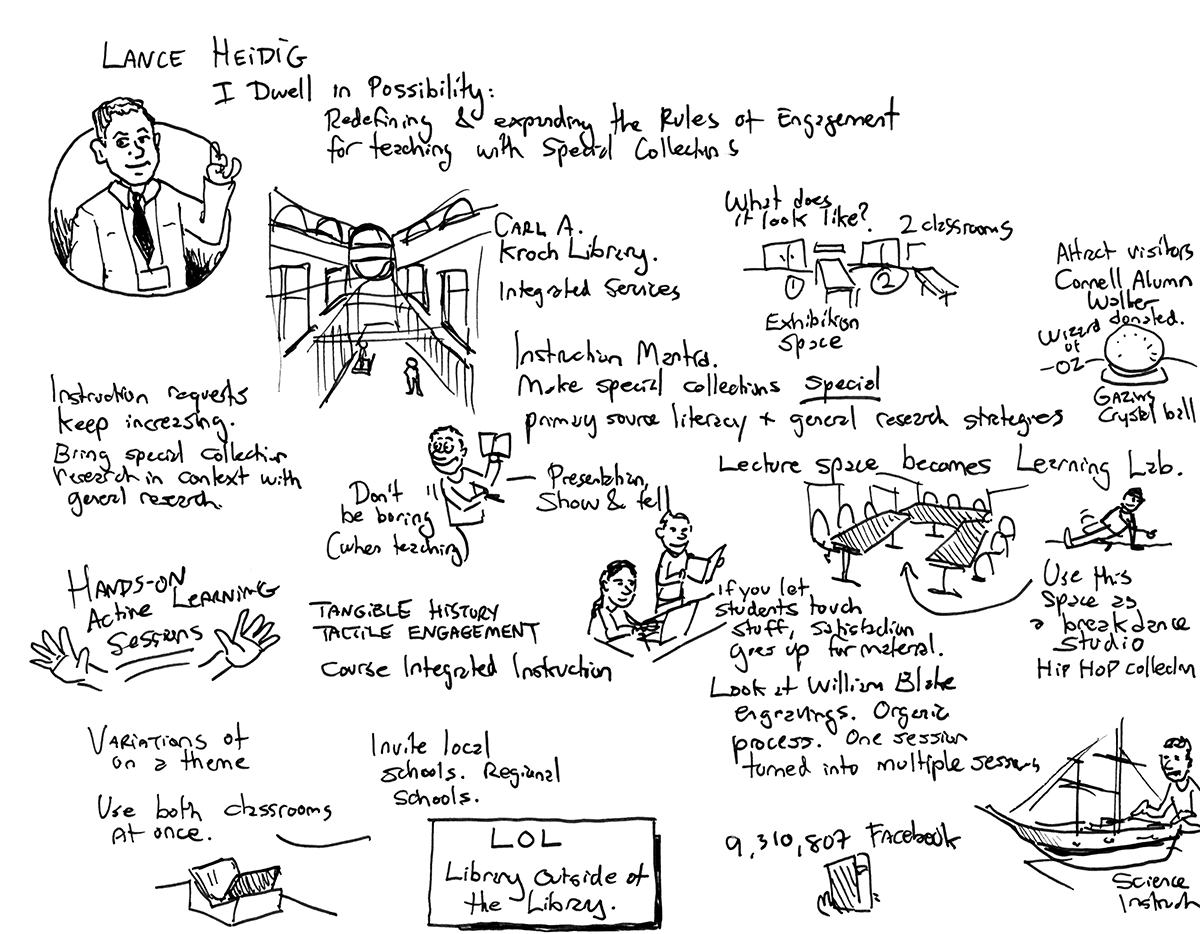 LANCE HEIDIG
I Dwell in Possibility:
Redefining & expanding the Rules of Engagement
for teaching with Special Collections
CARL A.
Kroch Library.
Integrated Services
What does
it look like?
2 classrooms
1
2
Exhibition
space
Attract visitors
Cornell Alumn
Walker
donated.
Wizard
of
OZ
Gazing
Crystal ball
Instruction Mantra.
Make special collections special
primary source literacy + general research strategies
Instruction requests
keep increasing.
Bring special collection
research in context with
general research.
Don't
be boring
(when teaching)
Presentation,
Show & tell
Lecture space becomes Learning Lab.
Use this
space as
a breakdance
studio
Hip Hop collectn
HANDS-ON
Active LEARNING
Sessions
TANGIBLE HISTORY
TACTILE ENGAGEMENT
Course Integrated Instruction
If you let
students touch
stuff, satisfaction
goes up for material.
Look at William Blake
engravings. Organic
process. One session
turned into multiple sessions
VARIATIONS of
on a theme
Use both classrooms
At once.
Invite local
schools. Regional
schools.
LOL
Library Outside of
the Library.
9,310,807 Facebook
Science
Instruc